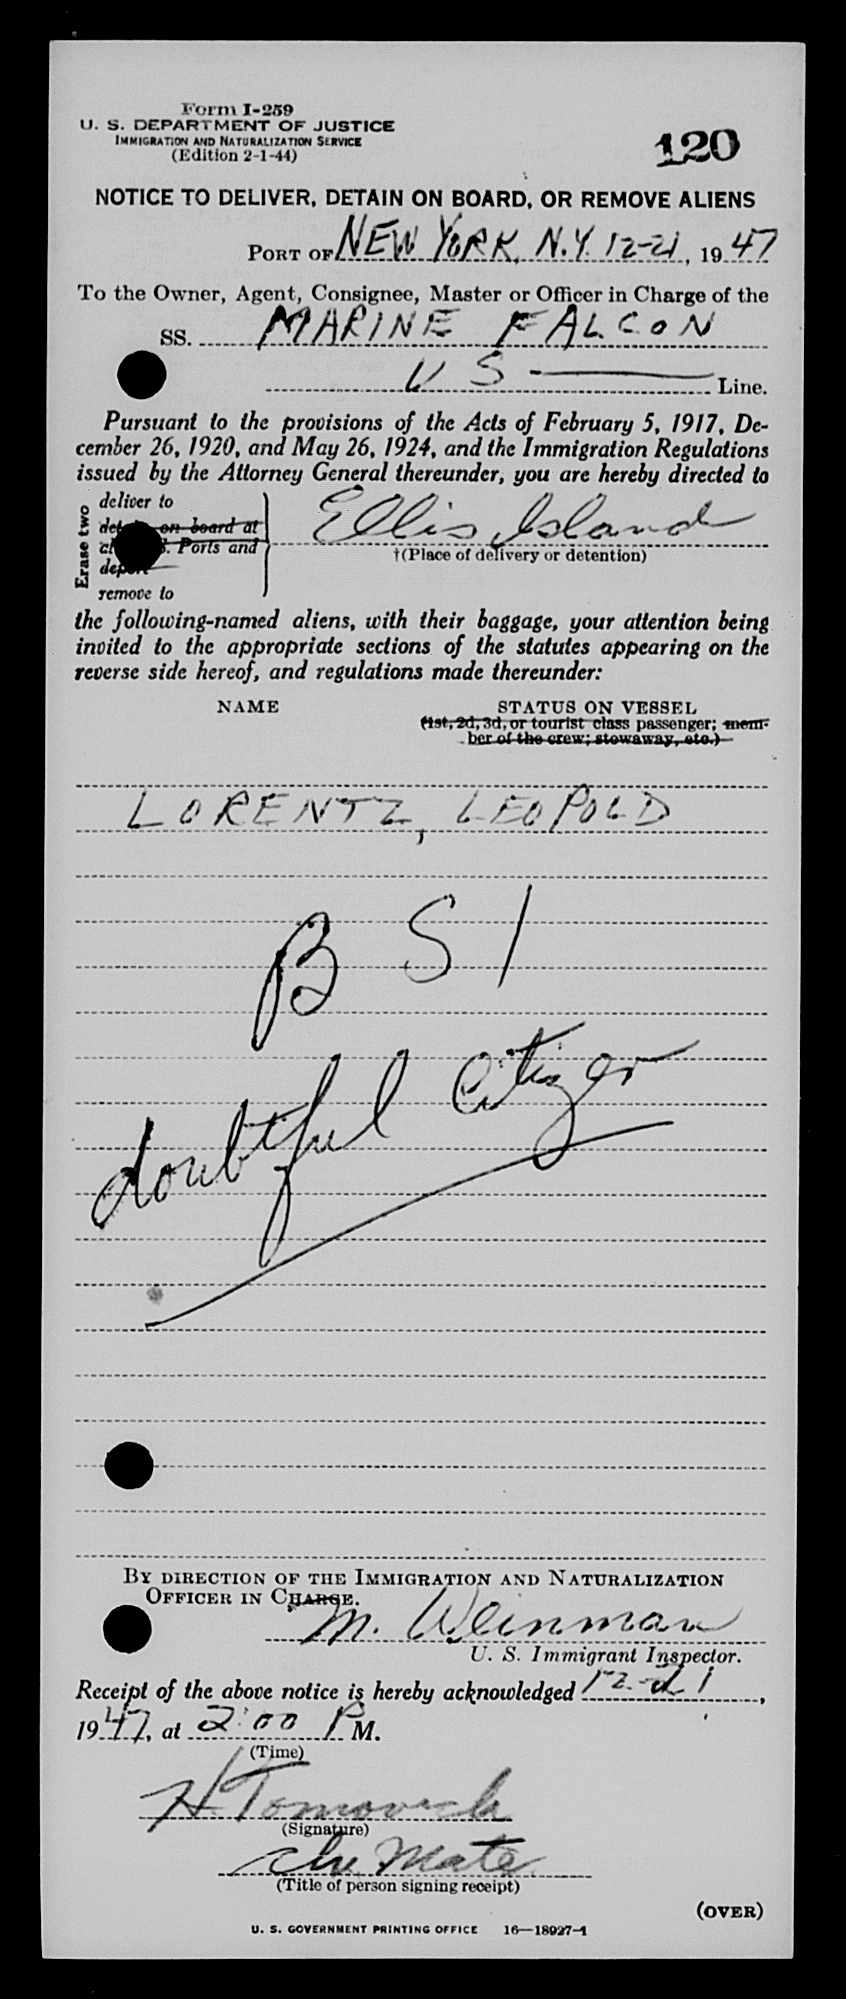 Form I-259
U. S. DEPARTMENT OF JUSTICE
IMMIGRATION AND NATURALIZATION SERVICE
(Edition 2-1-44)
120
NOTICE TO DELIVER, DETAIN ON BOARD, OR REMOVE ALIENS
PORT OF NEW YORK, N.Y. 12-21, 1947
To the Owner, Agent, Consignee, Master or Officer in Charge of the
SS. MARINE FALCON
US Line.
Pursuant to the provisions of the Acts of February 5, 1917, De-
cember 26, 1920, and May 26, 1924, and the Immigration Regulations
issued by the Attorney General thereunder, you are hereby directed to
Erase two
deliver to
on board at
Ports and
remove to
Ellis Island
†(Place of delivery or detention)
the following-named aliens, with their baggage, your attention being
invited to the appropriate sections of the statutes appearing on the
reverse side hereof, and regulations made thereunder:
NAME STATUS ON VESSEL
(1st, 2d, 3d, or tourist class passenger; mem-
ber of the crew; stowaway, etc.)
LORENTZ, LEOPOLD
BSI
doubtful Citizen
BY DIRECTION OF THE IMMIGRATION AND NATURALIZATION
OFFICER IN CHARGE.
M. Weinman
U. S. Immigrant Inspector.
Receipt of the above notice is hereby acknowledged 12-21,
1947, at 2:00 PM.
(Time)
H Tomovich
(Signature)
Mate
(Title of person signing receipt)
(OVER)
U. S. GOVERNMENT PRINTING OFFICE 16—18927-1